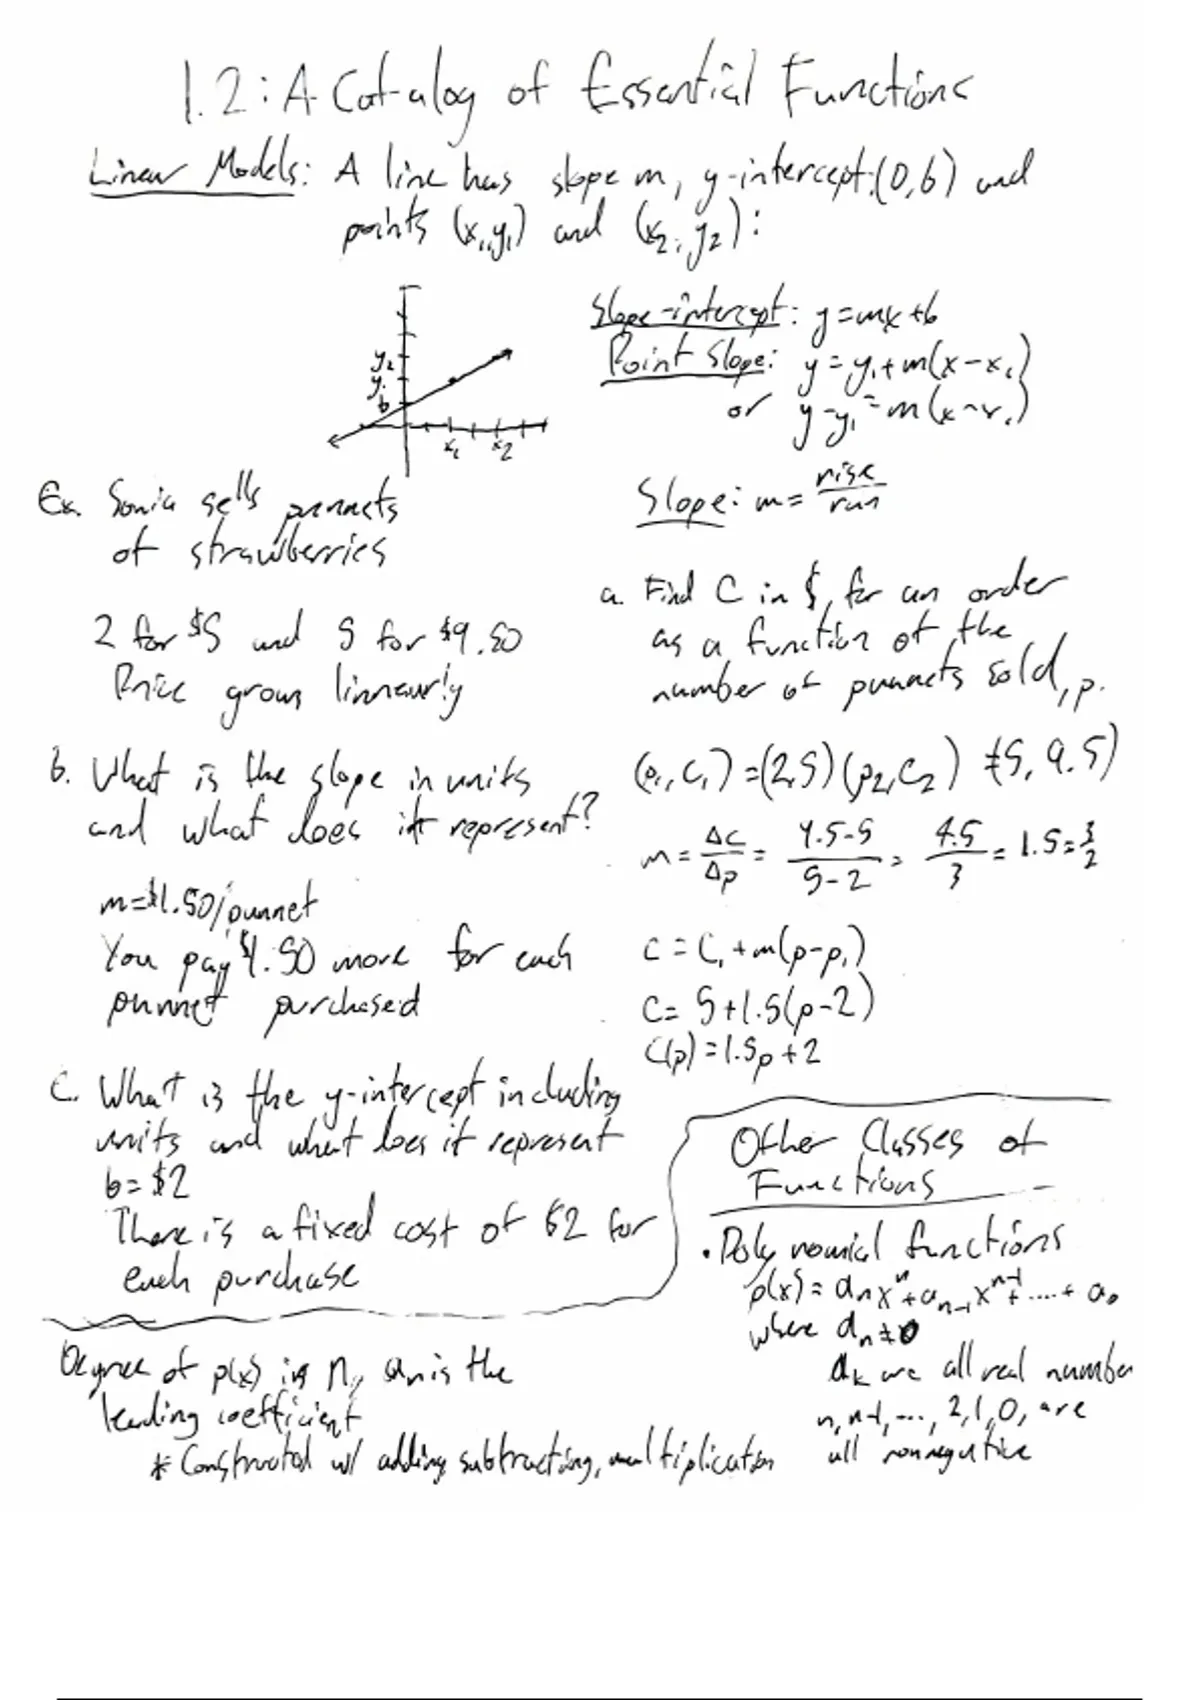 1.2: A Catalog of Essential Functions
Linear Models: A line has slope m, y-intercept:(0,b) and
points (x₁,y₁) and (x₂,y₂):
Slope-intercept: y=mx+b
Point Slope: y=y₁+m(x-x₁)
or y-y₁=m(x-x₁)
y₂
y₁
b
x₁ x₂
Slope: m = rise/run
Ex. Sonia sells punnets
of strawberries
2 for $5 and 5 for $9.50
Price grows linnearly
a. Find C in $, for an order
as a function of the
number of punnets sold, p.
(p₁,C₁)=(2,5)(p₂,C₂)=(5,9.5)
m = ΔC/Δp = 9.5-5/5-2 = 4.5/3 = 1.5 = 3/2
C = C₁+m(p-p₁)
C = 5+1.5(p-2)
C(p)=1.5p+2
b. What is the slope in units
and what does it represent?
m=$1.50/punnet
You pay $1.50 more for each
punnet purchased
C. What is the y-intercept including
units and what does it represent
b=$2
There is a fixed cost of $2 for
each purchase
Other Classes of
Functions
• Polynomial functions
p(x)=aₙxⁿ+aₙ₋₁xⁿ⁻¹+....+a₀
where aₙ≠0
aₖ are all real number
n,n-1,...,2,1,0, are
all nonnegative
Degree of p(x) is n, aₙ is the
leading coefficient
* Constructed w/ adding, subtracting, multiplication